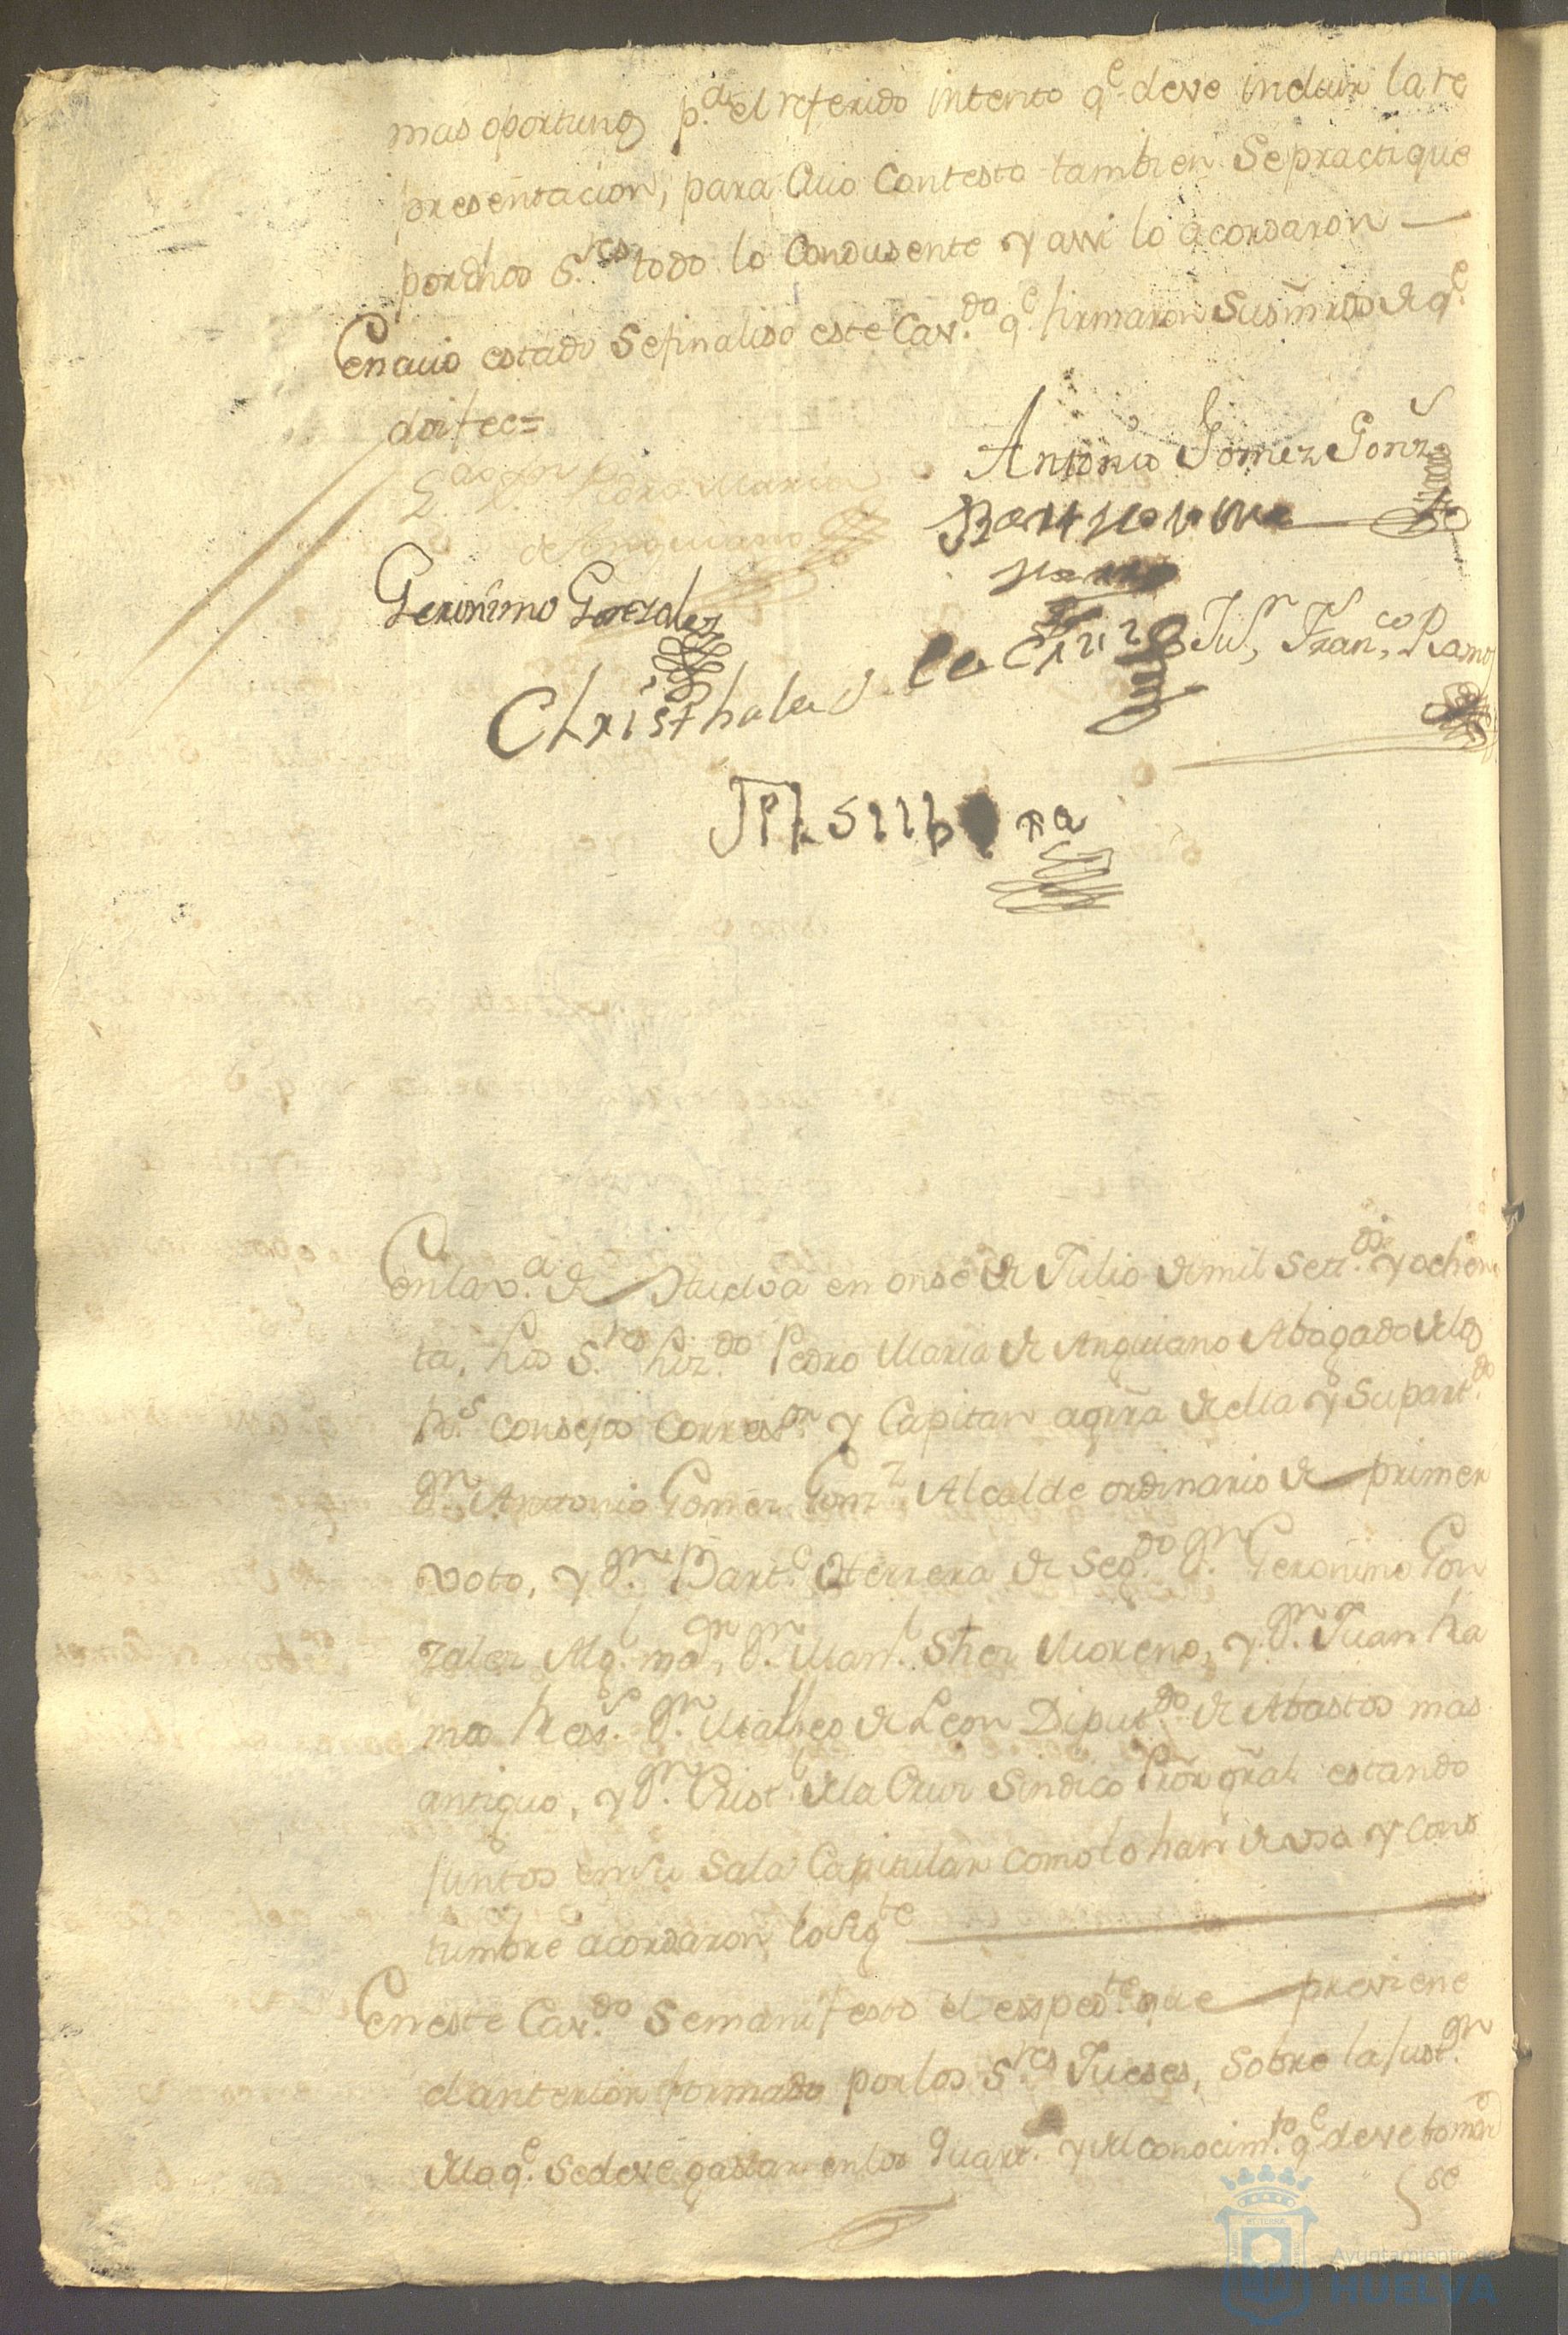 mas oportuno p.ª el referido intento q.e deve incluir la re
presentacion, para Cuio Contesto tambien Se practique
por dhos S.res todo lo Condusente y assi lo acordaron —
En cuio estado Se finaliso este Cav.do q.e firmaron Sus mrds de q.e
doi fee=
L.do Dn Pedro Maria
de Anguiano
Antonio Gomez Gonz
Bart
Herrera
Geronimo Gonzales
Christhobal de la Cruz
Jun, Fran,co Ramos
En la v.a de Huelva en onse de Julio de mil Sett.os y ochen
ta, los S.res Liz.do Pedro Maria de Anguiano Abogado de los
R.s Consejos Correx.or y Capitan aguerra de ella y Su part.do
Dn Antonio Gomez Gonz Alcalde ordinario de primer
voto, y Dn Bart.e Herrera de Seg.do Dn Geronimo Gon
zalez Alg.l mor, Dn Man.l Shez Moreno, y Dn Juan Ra
mos Dn Matheo de Leon Diput.do de Abastos mas
antiguo, y Dn Crist.l de la Cruz Sindico Pror gral estando
juntos en su Sala Capitular como lo han de uso y cos
tumbre acordaron lo sig.te
En este Cav.do Se manifesto el exped.te que previene
el anterior formado por los S.res Jueses, Sobre la just.on
de lo q.e se deve gastar en los Quart.s y del conocim.to q.e deve tomar
se
Ayuntamiento de
HUELVA